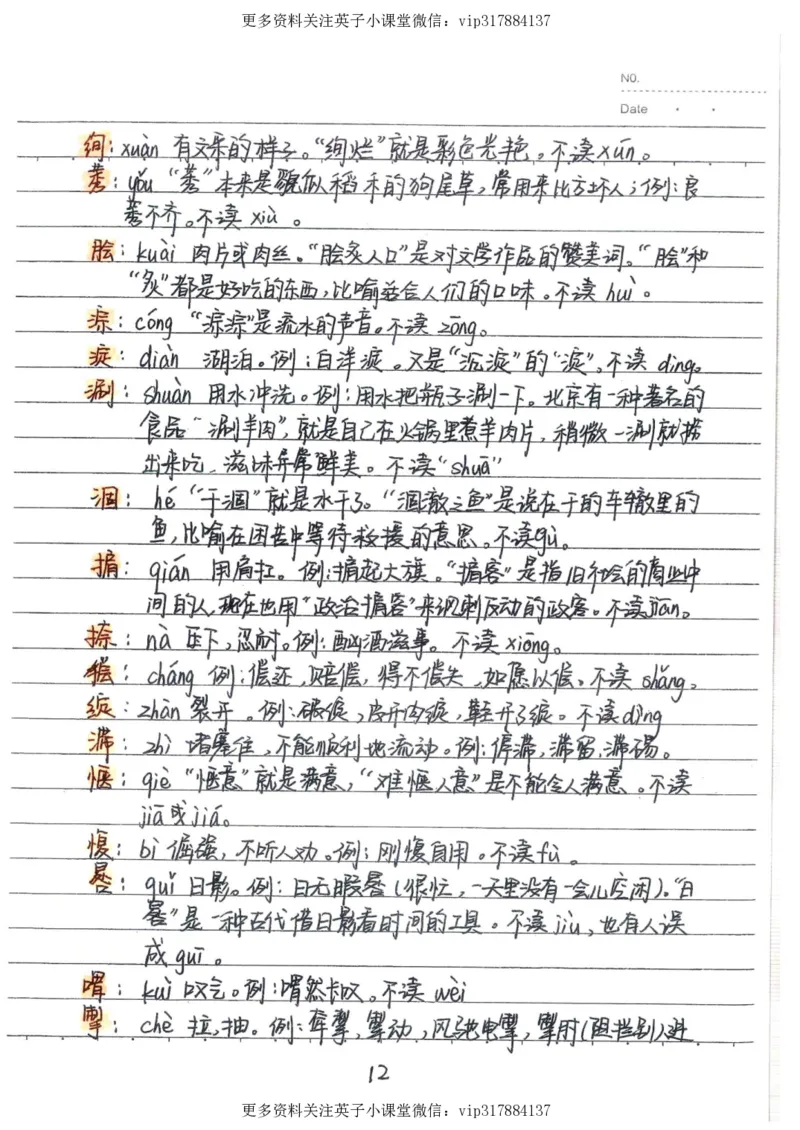 更多资料关注英子小课堂微信：vip317884137
NO.
Date
绚：xuàn 有文采的样子。“绚烂”就是彩色光艳。不读xún。
莠：yǒu “莠”本来是貌似稻禾的狗尾草，常用来比方坏人；例：良
莠不齐。不读 xiù 。
脍：kuài 肉片或肉丝。“脍炙人口”是对文学作品的赞美词。“脍”和
“炙”都是好吃的东西，比喻适合人们的口味。不读 huì 。
淙：cóng “淙淙”是流水的声音。不读 zōng。
淀：diàn 湖泊。例：白洋淀。又是“沉淀”的“淀”。不读 dìng。
涮：shuàn 用水冲洗。例：用水把瓶子涮一下。北京有一种著名的
食品“涮羊肉”，就是自己在火锅里煮羊肉片，稍微一涮就捞
出来吃，滋味异常鲜美。不读“shuā”
涸：hé “干涸”就是水干了。“涸辙之鱼”是说在干的车辙里的
鱼，比喻在困苦中等待救援的意思。不读gù。
掮：qián 用肩扛。例：掮起大旗。“掮客”是指旧社会的商业中
间的人，现在也用“政治掮客”来讽刺反动的政客。不读jiān。
捺：nà 压下，忍耐。例：酗酒滋事。不读 xiōng。
偿：cháng 例：偿还，赔偿，得不偿失，如愿以偿。不读 shǎng。
绽：zhàn 裂开。例：破绽，皮开肉绽，鞋开了绽。不读dìng
滞：zhì 堵塞住，不能顺利地流动。例：停滞，滞留，滞碍。
惬：qiè “惬意”就是满意，“难惬人意”是不能令人满意。不读
jiā或jiá。
愎：bì 倔强，不听人劝。例：刚愎自用。不读fù 。
晷：guǐ 日影。例：日无暇晷（很忙，一天里没有一会儿空闲）。“日
晷”是一种古代借日影看时间的工具。不读jiù，也有人误
成guī 。
喟：kuì 叹气。例：喟然长叹。不读 wèi
掣：chè 拉，抽。例：牵掣，掣动，风驰电掣，掣肘（阻挡别）进
12
更多资料关注英子小课堂微信：vip317884137